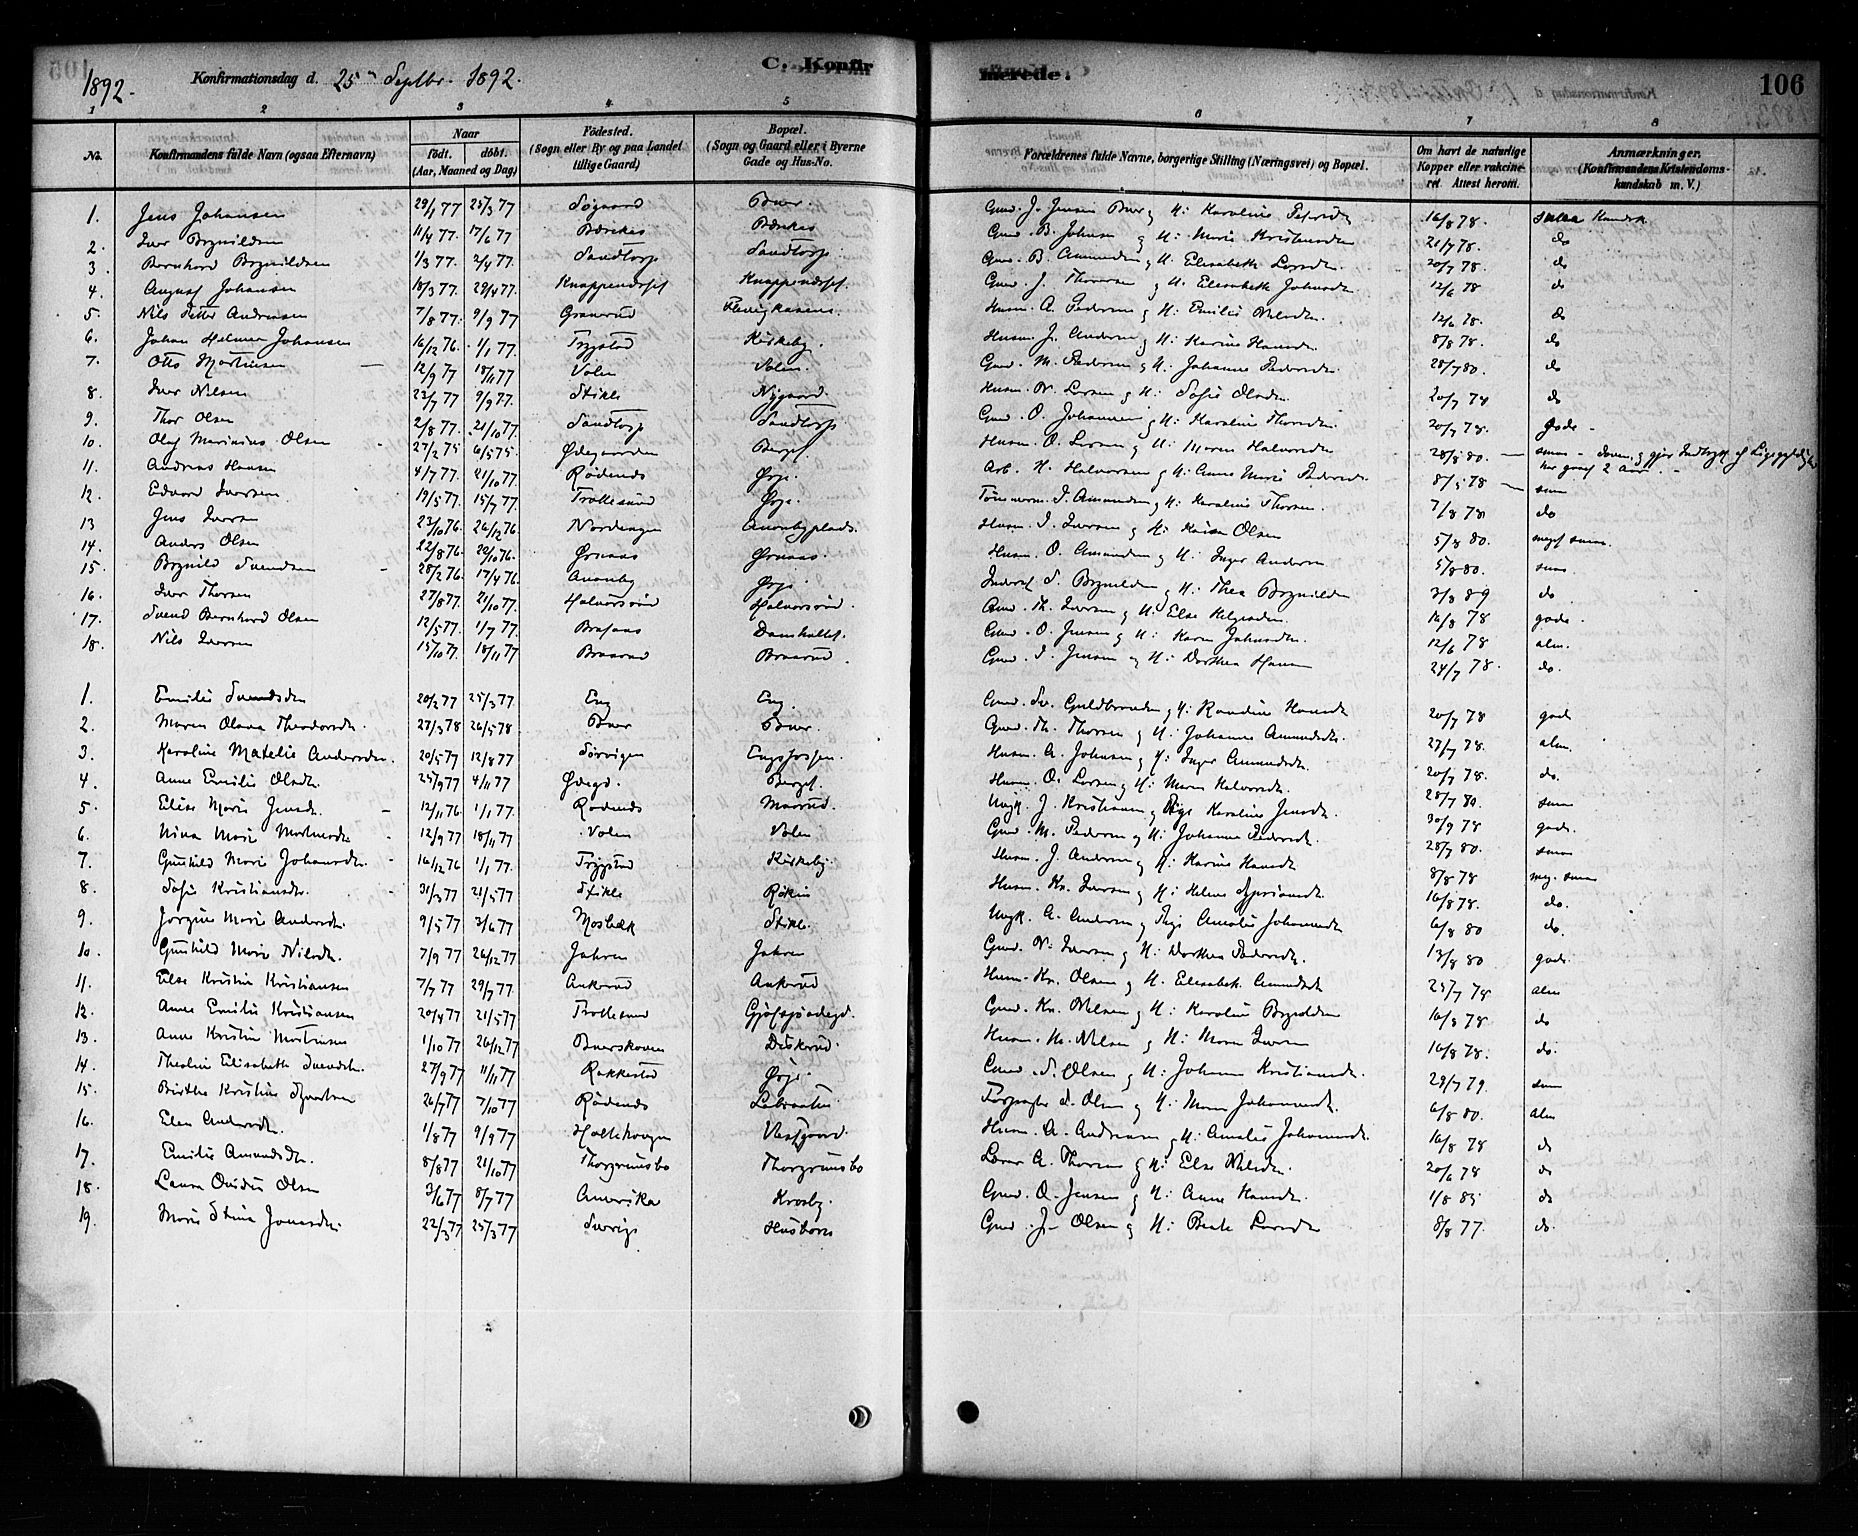 1892.
Konfirmationsdag d. 25 Septbr. 1892.
C. Konfirmerede.
106
1 2 3 4 5 6 7 8
No.
Konfirmandens fulde Navn (ogsaa Efternavn)
Naar födt. döbt. (Aar, Maaned og Dag)
Födested. (Sogn eller By og paa Landet tillige Gaard)
Bopæl. (Sogn og Gaard eller i Byerne Gade og Hus-No.
Forældrenes fulde Navne, borgerlige Stilling (Næringsvei) og Bopæl.
Om havt de naturlige Kopper eller vakcineret. Attest herom.
Anmærkninger. (Konfirmandens Kristendomskundskab m. V.)
1. Jens Johansen 29/1 77 25/3 77 Søgaard Buer Gmd. J. Jensen Buer og H: Karoline 16/8 78. smaa Kundsk.
2. Iver Brynildsen 11/4 77. 17/6 77 Bærekas Bærekas Gmd. B. Johnsen og H: Marie 21/7 78. do
3. Bernhard Brynildsen 1/3 77. 2/4 77. Sandtorp Sandtorp. Gmd. B. Amundsen og H. Elisabeth Larsdtr. 20/7 78. do
4. August Johansen 18/3 77. 29/4 77. Knappendrset Knappendrset. Gmd. J. Thoresen og H. Elisabeth Johnsdtr. 12/6 78 do
5. Nils Petter Andersen 7/8 77. 9/9 77 Granerud Husm. A. Pedersen og H: Emilie Nilsdtr. 12/6 78. do
6. Johan Helmer Johansen 16/12 76. 1/1 77. Trygstad Kirkeby. Husm. J. Andersen og H: Karine Hansdtr. 8/8 78. do
7. Otto Martinsen 12/9 77 18/11 77 Volen Volen. Gmd. M. Pedersen og H: Johanne Pedersdtr. 28/7 80. do
8. Iver Nilsen 23/7 77 9/9 77. Stikle Nygaard. Husm. N. Larsen og H: Sofie Olsdtr. 20/7 74 do
9. Thor Olsen 2/8 77. 21/10 77. Sandtorp Sandtorp. Gmd. O. Johannesen og H: Karoline Thorsdtr. 20/7 78. gode.
10. Olaf Marinius Olsen 27/2 75 6/5 75. Ødegaarden Berget. Husm. O. Larsen og H: Maren Halvorsdtr. 28/8 80. smaa - doven, og gjør Indtryk af Ligegyldighed har gaaet 2 Aar.
11. Andreas Hansen 4/7 77. 21/10 77. Rødenes Ørje. Arb. H. Halvorsen og H: Anne Marie Pedersdtr. 8/5 78 smaa
12. Edvard Iversen 19/5 77. 15/7 77. Trollesund Ørje. Tømmerm. I. Amundsen og H: Karoline Thorsen. 7/8 78 do
13 Jens Iversen 23/10 76. 26/12 76 Nordengen Anonbyplads. Husm. I. Iversen og H: Karen Olsen 5/8 80. meget smaa.
14. Anders Olsen 22/8 76. 22/10 76. Ørnaas Ørnaas. Husm. O. Amundsen og H: Inger Andersen 5/8 80. smaa.
15 Brynild Svendsen 28/2 76. 17/4 76. Anonby Ørje Inderst S. Brynildsen og H: Thea Brynildsen 3/3 89 do
16. Iver Thorsen 27/8 77. 21/10 77. Halvorsrød Halvorsrød. Gmd. Th. Iversen og H: Else Helgesdtr. 16/8 78 gode.
17. Svend Bernhard Olsen 12/5 77. 1/7 77. Braaaas Damholtet. Gmd. O. Jensen og H: Karen Johnsdtr. 12/6 78 alm.
18. Nils Iversen 15/10 77. 18/11 77 Braarud Braarud. Gmd. I. Jensen og H: Dorthea Hansen 24/7 78. do.
1. Emilie Svendsdtr 20/2 77 25/3 77. Eng Eng. Gmd. Sv. Guldbrandsen og H. Randine Hansdtr 20/7 78 gode
2. Maren Olava Theodorsdtr. 27/3 78 26/5 78 Buer Buer. Gmd. Th. Thorsen og H: Johanne Amundsdtr. 27/7 78. alm.
3. Karoline Matelie Andersdtr. 20/5 77 12/8 77 Sørvigen Engsfossen. Husm. A. Johnsen og H: Inger Amundsdtr. 20/7 78. do.
4. Anne Emilie Olsdtr. 25/9 77 4/11 77 Ødegd. Berget. Husm. O. Larsen og H: Maren Halvorsdtr. 28/7 80. smaa
5. Elise Marie Jensdtr. 12/11 76. 1/1 77. Rødenes Maarud. Ungk. J. Kristiansen og Pige Karoline Jensdtr. 30/9 78 gode.
6. Nina Marie Martinsdtr. 12/9 77 18/11 77 Volen Volen Gmd. M. Pedersen og H: Johanne Pedersdtr. 28/7 80. smaa
7. Gunhild Marie Johansdtr. 16/12 76 1/1 77. Trygstad Kirkeby. Husm. J. Andersen og H: Karine Hansdtr. 8/8 78 meg. smaa
8. Sofie Kristiansdtr. 31/3 77 21/5 77 Stikle Husm. Kr. Iversen og H: Helene 16/8 78. do.
9. Jørgine Marie Andersdtr. 9/5 77 3/6 77 Mosbæk Stikle. Ungk. A. Andersen og Pige Amalie Johannesdtr 6/8 80 do.
10. Gunhild Marie Nilsdtr. 7/9 77 26/12 77 Jahren Jahren Gmd. N. Iversen og H: Dorthea Pedersdtr. 13/8 80 gode.
11. Else Kristine Kristiansen 7/7 77 29/7 77. Ankerud Ankerud Husm. Kr. Olsen og H. Elisabeth Amundsdtr 25/7 78 alm
12. Anne Emilie Kristiansen 20/4 77 21/5 77 Trollesund Gjøssjødegd. Gmd. Kr. Nilsen og H: Karoline Brynildsen 16/8 78 do
13. Anne Kristine Martinsen 1/10 77 26/12 77 Buerskoven Diskerud. Husm. M. Nilsen og H: Maren Iversen 16/8 78. do.
14. Theoline Elisabeth Svendsdtr. 27/9 77 11/11 77 Rakkestad Ørje. Gmd. S. Olsen og H: Johanne Kristiansdtr. 29/7 79. smaa
15. Birthe Kristine 26/7 77 7/10 77 Rødenes Labraaten Forpagter S. Olsen og H: Maren Johannesdtr. 6/8 80. alm
16. Elen Andersdtr. 1/8 77 9/9 77 Holtekougen Vestgaard. Husm. A. Andreasen og H: Amalie Johannesdtr. 16/8 78 do
17. Emilie Amundsdtr. 8/8 77 21/10 77 Thorgrimsbo Thorgrimsbo Lærer A. Thoresen og H: Else Nilsdtr. 20/6 78 do
18. Laura Ovidie Olsen 3/6 77 8/7 77 Amerika Krosby. Gmd. O. Jensen og H: Anne Hansdtr. 1/8 85 do
19. Marie Stina Jonasdtr. 22/3 77 25/3 77 Sverige Husborn Gmd. J. Olsen og H: Beate Larsdtr 8/8 77. do.